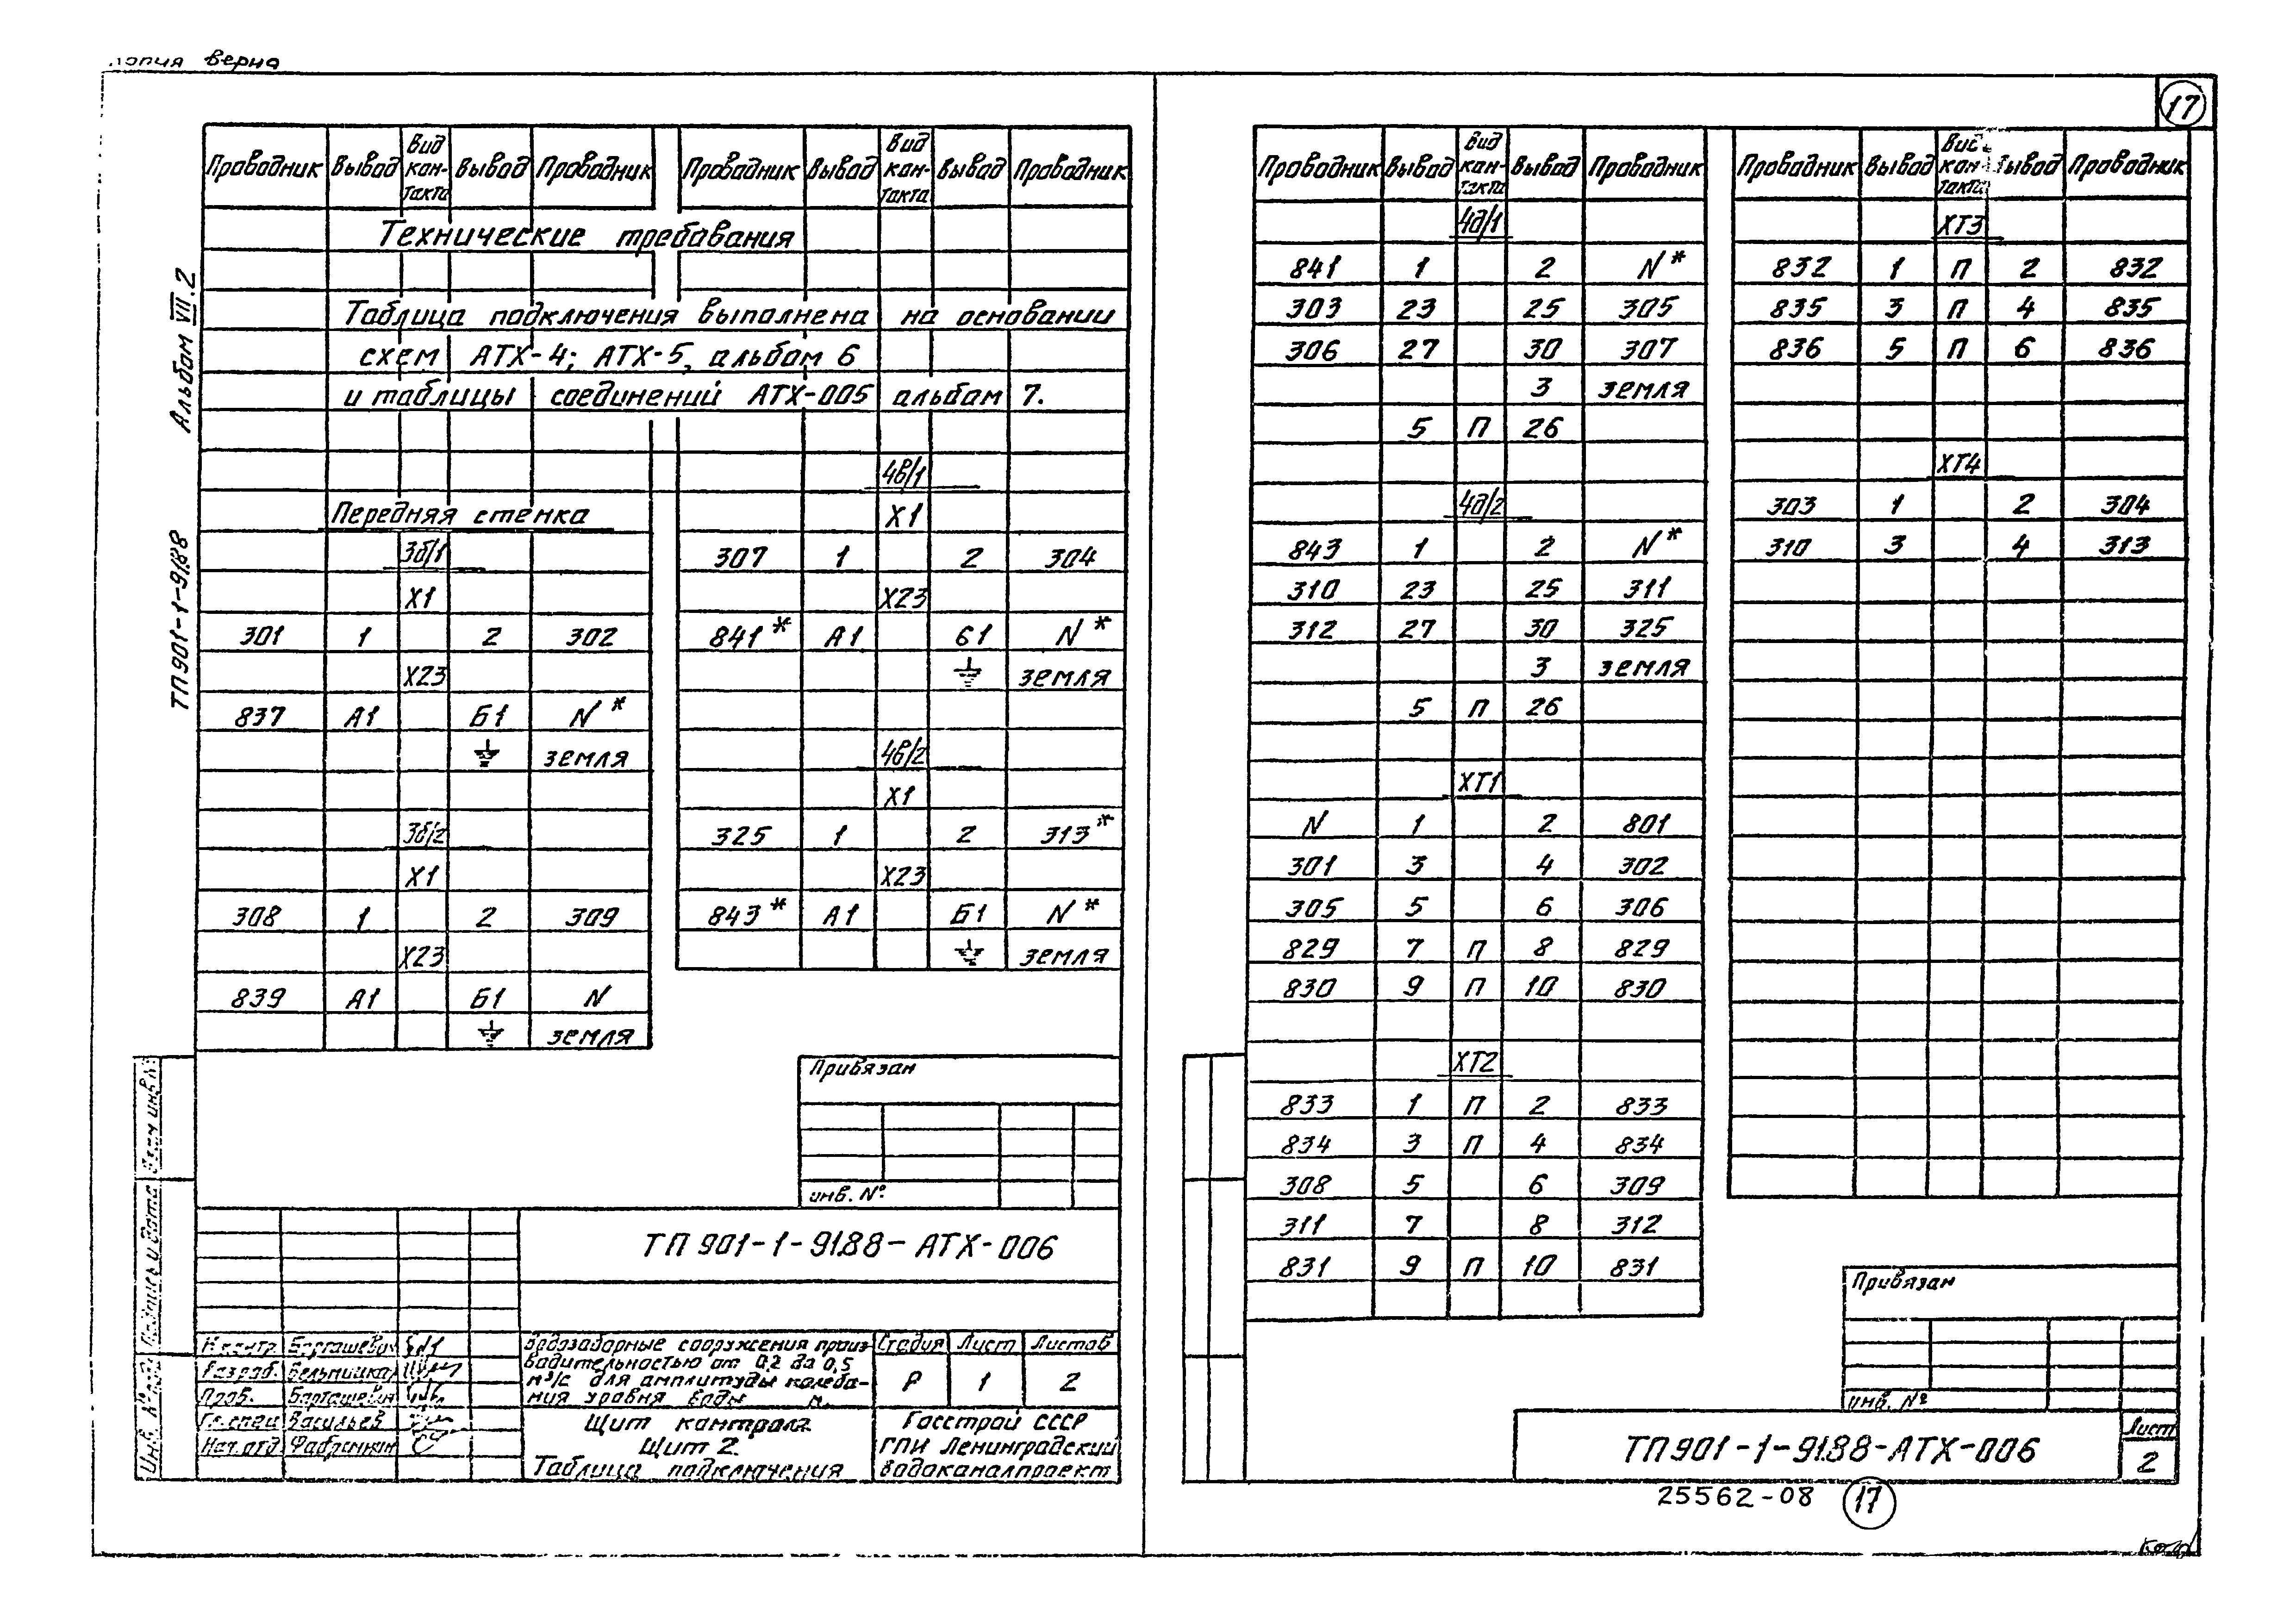 верна
17
Альбом VII.2
ТП901-1-91.88
Проводник Вывод Вид кон-такта Вывод Проводник
Технические требования
Таблица подключения выполнена на основании
схем АТХ-4; АТХ-5, альбом 6
и таблицы соединений АТХ-005 альбом 7.
Передняя стенка
3б/1
Х1
301 1 2 302
Х23
837 А1 Б1 N*
земля
3б/2
Х1
308 1 2 309
Х23
839 А1 Б1 N
земля
Проводник Вывод Вид кон-такта Вывод Проводник
4в/1
Х1
307 1 2 304
Х23
841* А1 Б1 N*
земля
4в/2
Х1
325 1 2 313*
Х23
843* А1 Б1 N*
земля
Привязан
инв. №
ТП 901-1-91.88-АТХ-006
Водозаборные сооружения произ-
водительностью от 0,2 до 0,5
м³/с для амплитуды колеба-
ния уровня воды м.
Стадия Лист Листов
Р 1 2
Щит контроля
Щит 2
Таблица подключения
Госстрой СССР
ГПИ Ленинградский
Водоканалпроект
Н.контр.
Разраб.
Пров.
Гл.спец. Васильев
Нач.отд
Проводник Вывод Вид кон-такта Вывод Проводник
4д/1
841 1 2 N*
303 23 25 305
306 27 30 307
3 земля
5 П 26
4д/2
843 1 2 N*
310 23 25 311
312 27 30 325
3 земля
5 П 26
ХТ1
N 1 2 801
301 3 4 302
305 5 6 306
829 7 П 8 829
830 9 П 10 830
ХТ2
833 1 П 2 833
834 3 П 4 834
308 5 6 309
311 7 8 312
831 9 П 10 831
Проводник Вывод Вид кон-такта Вывод Проводник
ХТ3
832 1 П 2 832
835 3 П 4 835
836 5 П 6 836
ХТ4
303 1 2 304
310 3 4 313
Привязан
инв. №
ТП901-1-91.88-АТХ-006
Лист
2
25562-08 17